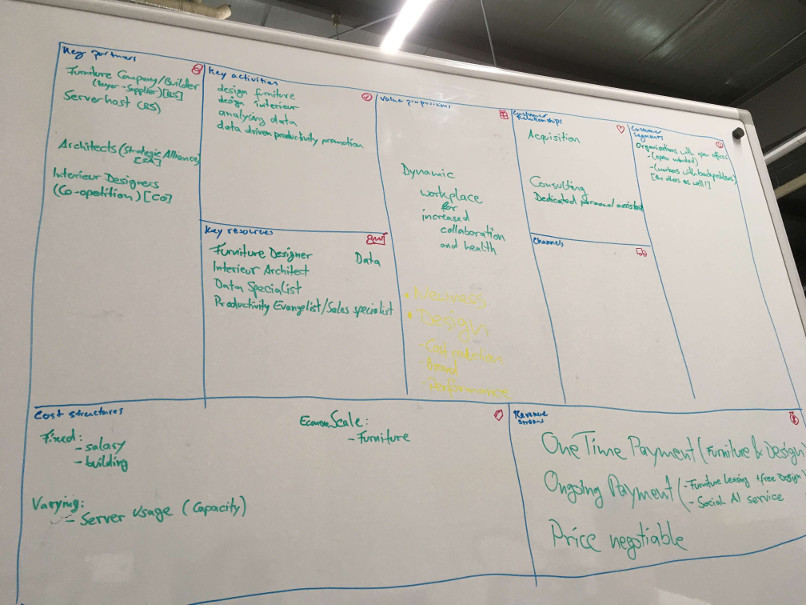 Key partners
Furniture Company/Builder
(Buyer-Supplier)[BS]
Serverhost (BS)
Architects (Strategic Alliance)
[SA]
Interieur Designers
(Co-opetition) [CO]
Key activities
design furniture
design interieur
analysing data
data driven productivity promotion
Key resources
Furniture Designer
Data
Interieur Architect
Data Specialist
Productivity Evangelist/Sales specialist
Value propositions
Dynamic
workplace
for
increased
collaboration
and health
• Newness
• Design
- Customization
- Brand
- Performance
Customer
Relationships
Acquisition
Consulting
Dedicated personal assistant
Channels
Customer
Segments
Organisations with open offices
- (open minded)
- (workers with backproblems)
[the others as well!]
Cost structures
Fixed:
- salary
- building
Varying:
- Server usage (Capacity)
Economy Scale:
- Furniture
Revenue
streams
One Time Payment (Furniture & Design)
Ongoing Payment (- Furniture Leasing + free Design)
- Social AI service
Price negotiable